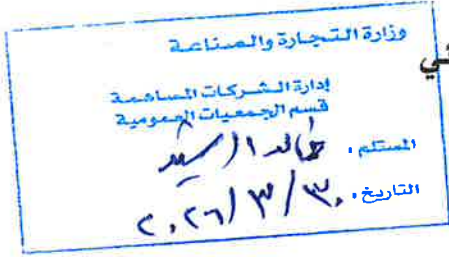 وزارة التجارة والصناعة
إدارة الشركات المساهمة
قسم الجمعيات العمومية
المستلم: خالد الرشيد
التاريخ: ٢٠٢٦/٣/٣٠